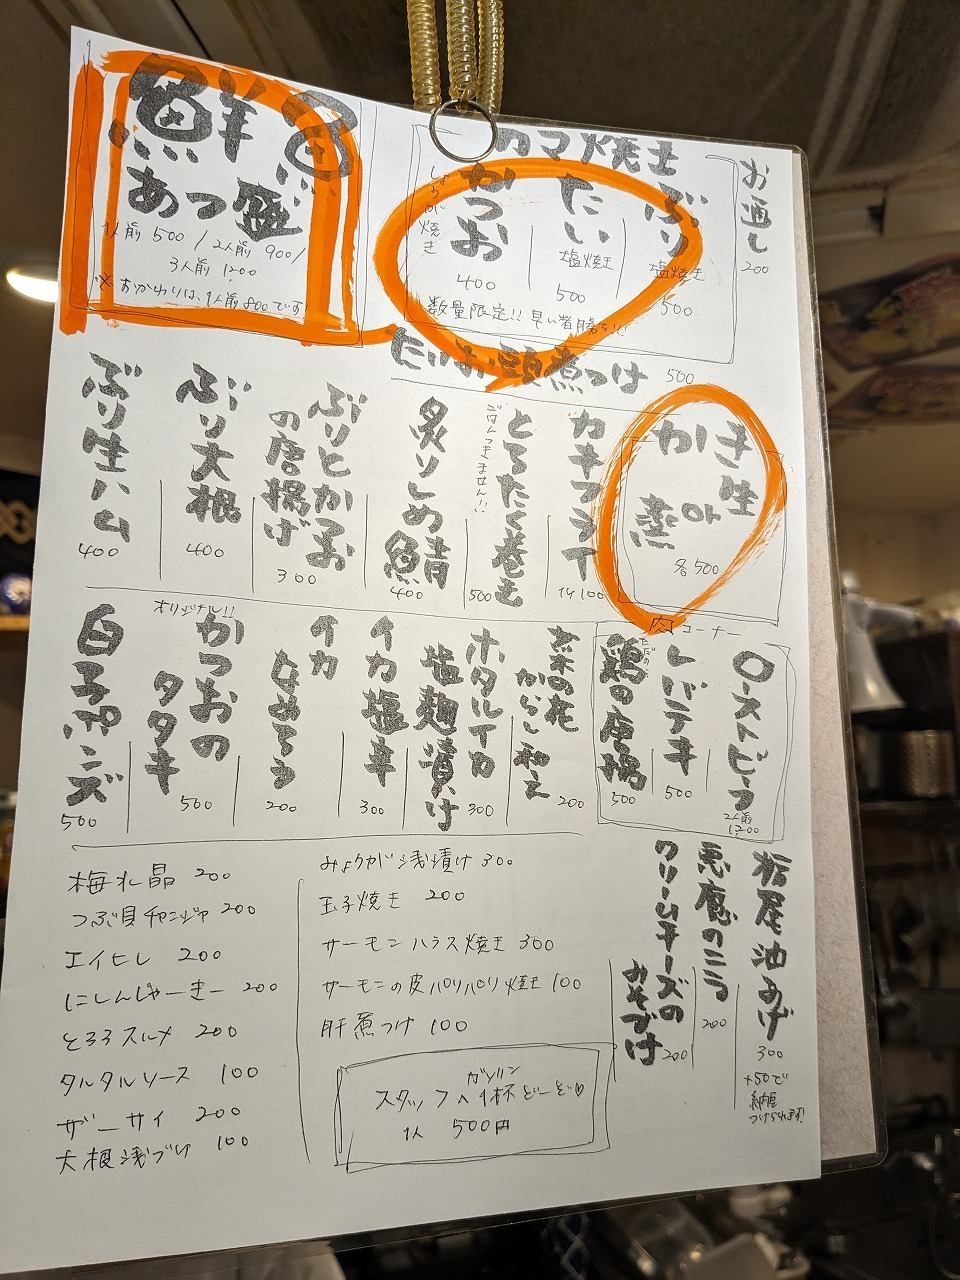 お通し
200
カマ焼き
ぶり
塩焼き
500
たい
塩焼き
500
かつお
しょうが焼き
400
数量限定!! 早い者勝ち!!!
鮮魚
あつ盛
1人前 500 / 2人前 900/
3人前 1200
※おかわりは、1人前800です
たいお頭煮つけ 500
かき 生 or 蒸
各500
カキフライ
1ケ100
とろたく巻き
ごはんつきません!!
500
炙りしめ鯖
400
ぶりとかつお
の唐揚げ
300
ぶり大根
400
ぶり生ハム
400
肉コーナー
ローストビーフ
2人前
1,200
レバテキ
500
鶏の唐揚
500
菜の花
からし和え
200
ホタルイカ
塩麹漬け
300
イカ塩辛
300
イカ
なめろう
200
オリジナル!!
かつおの
タタキ
500
白子ポンズ
500
栃尾油あげ
300
+50で
納豆
つけられます!
悪魔のニラ
200
クリームチーズの
みそづけ
200
みょうが浅漬け 300
玉子焼き 200
サーモンハラス焼き 300
サーモンの皮パリパリ焼き 100
肝煮つけ 100
ガソリン
スタッフへ1杯どーぞ♡
1人 500円
梅水晶 200
つぶ貝チャンジャ 200
エイヒレ 200
にしんじゃーきー 200
とろろスルメ 200
タルタルソース 100
ザーサイ 200
大根浅づけ 100